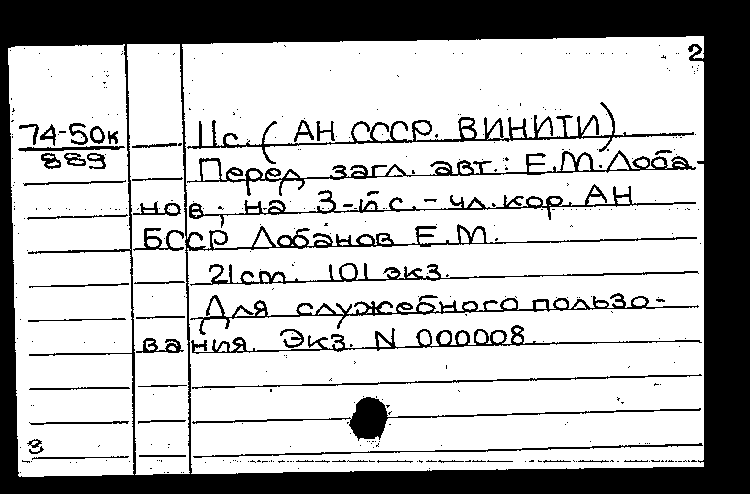 2
74-50к 11с. (АН СССР. ВИНИТИ).
889
Перед загл. авт.: Е.М.Лоба-
нов; на 3-й с. - чл.кор. АН
БССР Лобанов Е.М.
21 ст. 101 экз.
Для служебного пользо-
вания. Экз. N 000008.
3